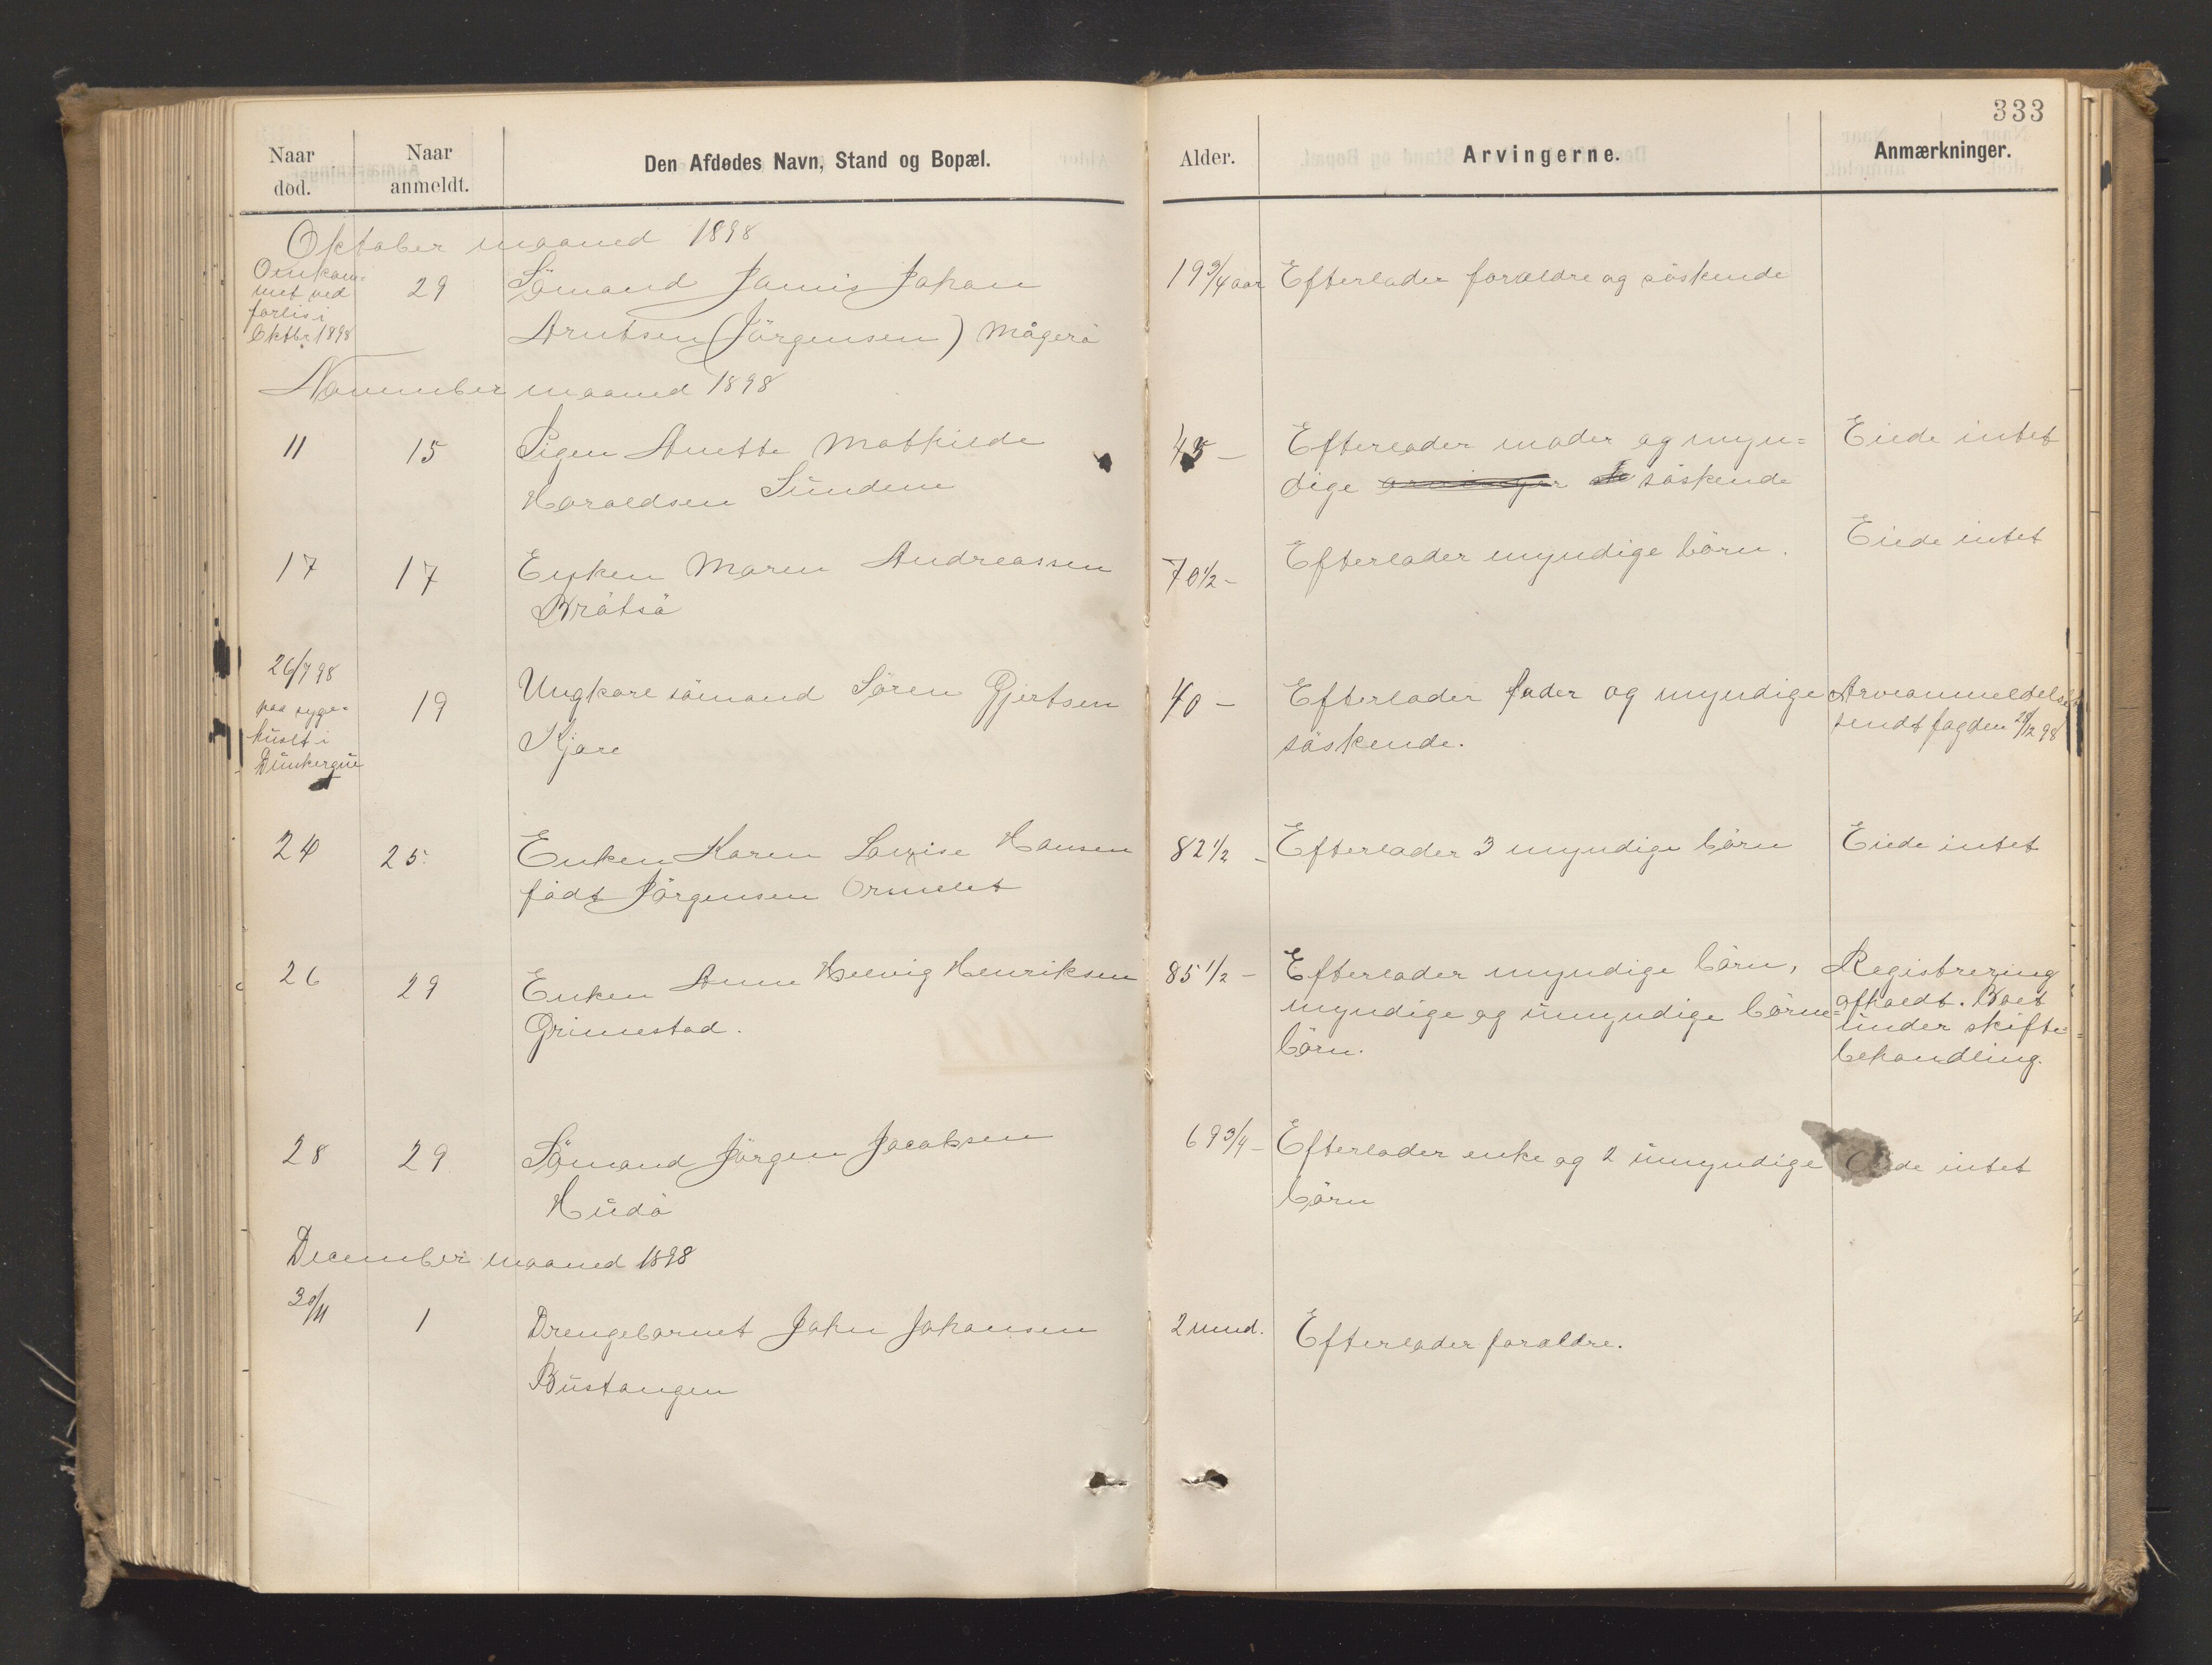 333
Naar død.
Naar anmeldt.
Den Afdødes Navn, Stand og Bopæl.
Alder.
Arvingerne.
Anmærkninger.
Oktober maaned 1898
Omkom-
met ved
forlis i
Oktbr 1898
29
Sömand Jamis Johan
Arntsen (Jörgensen) Mågerö
19 3/4 aar
Efterlader forældre og söskende
November maaned 1898
11
15
Pigen Anette Mathilde
Haraldsen Sundene
45 —
Efterlader moder og myn=
dige söskende
Eiede intet
17
17
Enken Maren Andreassen
Bråtså
70 1/2 —
Efterlader myndige börn.
Eiede intet
26/7 98
paa syge-
huset i
Dunkerque
19
Ungkarl sömand Sören Gjertsen
Kjære
40 —
Efterlader fader og myndige
söskende.
Arveanmeldelse
sendt fogden 28/12 98
24
25
Enken Karen Lovise Hansen
födt Jörgensen Ormelet
82 1/2 —
Efterlader 3 myndige börn
Eiede intet
26
29
Enken Anne Helvig Henriksen
Grimestad.
85 1/2 —
Efterlader myndige börn,
myndige og umyndige börne=
börn.
Registrering
afholdt. Boet
under skifte=
behandling.
28
29
Sömand Jörgen Jacobsen
Hudö
69 3/4 —
Efterlader enke og 2 umyndige
börn
Eiede intet
December maaned 1898
30/11
1
Drengebarnet John Johansen
Bustangen
2 mnd.
Efterlader forældre.